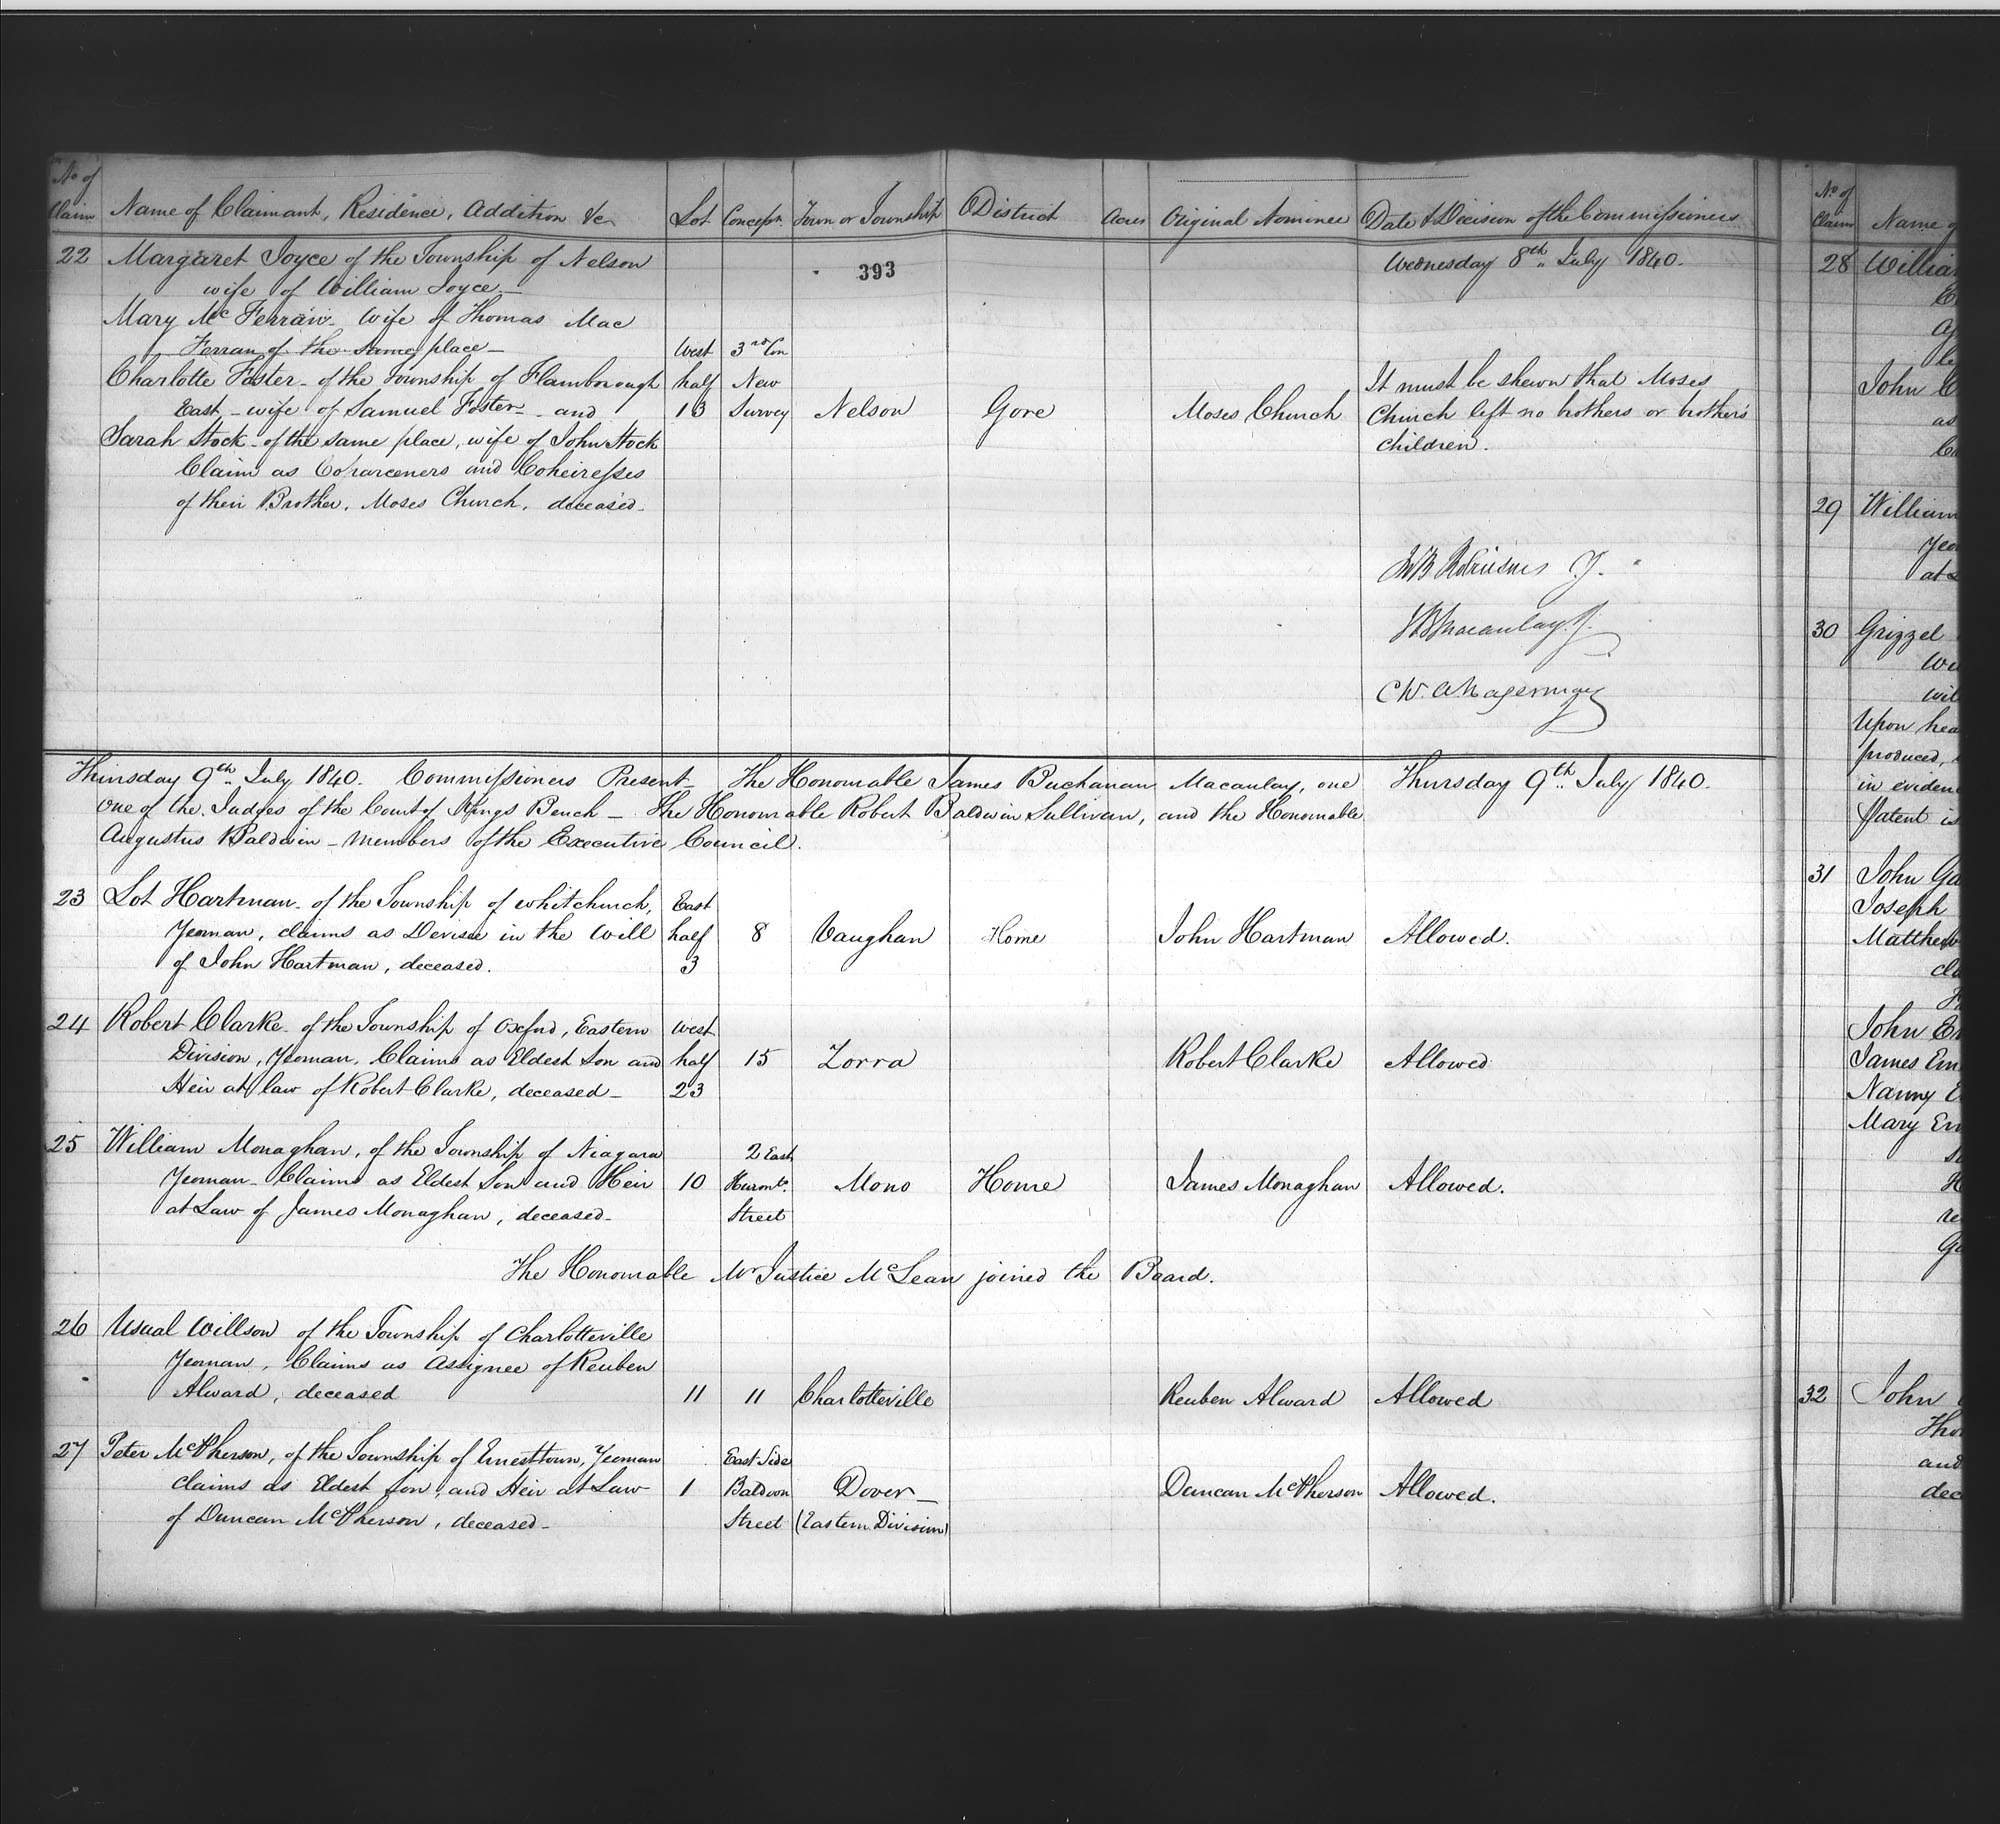 No of Claim Name of Claimant, Residence, Addition &c Lot Concess.n Town or Township District Acres Original Nominee Date & Decision of the Commissioners
22 Margaret Joyce of the Township of Nelson
wife of William Joyce
393
Wednesday 8th July 1840.
Mary McFerran wife of Thomas Mac
Ferran of the same place West 3rd Con
Charlotte Foster of the Township of Flamborough half New
East wife of Samuel Foster and 13 Survey Nelson Gore Moses Church
Sarah Stock of the same place, wife of John Stock
Claim as Coparceners and Coheiresses
of their Brother, Moses Church, deceased
It must be shewn that Moses
Church left no brothers or brother's
children.
JB Macaulay. J.
C W. A Hagerman
Thursday 9th July 1840. Commissioners Present The Honourable James Buchanan Macaulay, one
one of the Judges of the Court of Kings Bench The Honourable Robert Baldwin Sullivan, and the Honourable
Augustus Baldwin members of the Executive Council.
Thursday 9th July 1840.
23 Lot Hartman of the Township of Whitchurch, East
Yeoman, claims as Devisee in the Will half 8 Vaughan Home John Hartman Allowed.
of John Hartman, deceased. 3
24 Robert Clarke of the Township of Oxford, Eastern West
Division, Yeoman, Claims as Eldest Son and half 15 Zorra Robert Clarke Allowed
Heir at law of Robert Clarke, deceased 23
25 William Monaghan, of the Township of Niagara 2 East
Yeoman Claims as Eldest Son and Heir 10 Huronto. Mono Home James Monaghan Allowed.
at Law of James Monaghan, deceased Street
The Honourable Mr Justice McLean joined the Board.
26 Usual Willson of the Township of Charlotteville
Yeoman, Claims as Assignee of Reuben
Alward, deceased 11 11 Charlotteville Reuben Alward Allowed
27 Peter McPherson, of the Township of Ernesttown, Yeoman East Side
claims as Eldest Son, and Heir at Law 1 Baldoon Dover Duncan McPherson Allowed.
of Duncan McPherson, deceased Street (Eastern Division)
No of Claim Name
28 Willia
John
as
29 William
Yeo
at
30 Grizzel
Wi
wil
Upon hea
produced,
in eviden
Patent is
31 John Ga
Joseph
Matthew
cla
John Em
James Em
Nanny E
Mary Em
32 John
Tho
and
dec